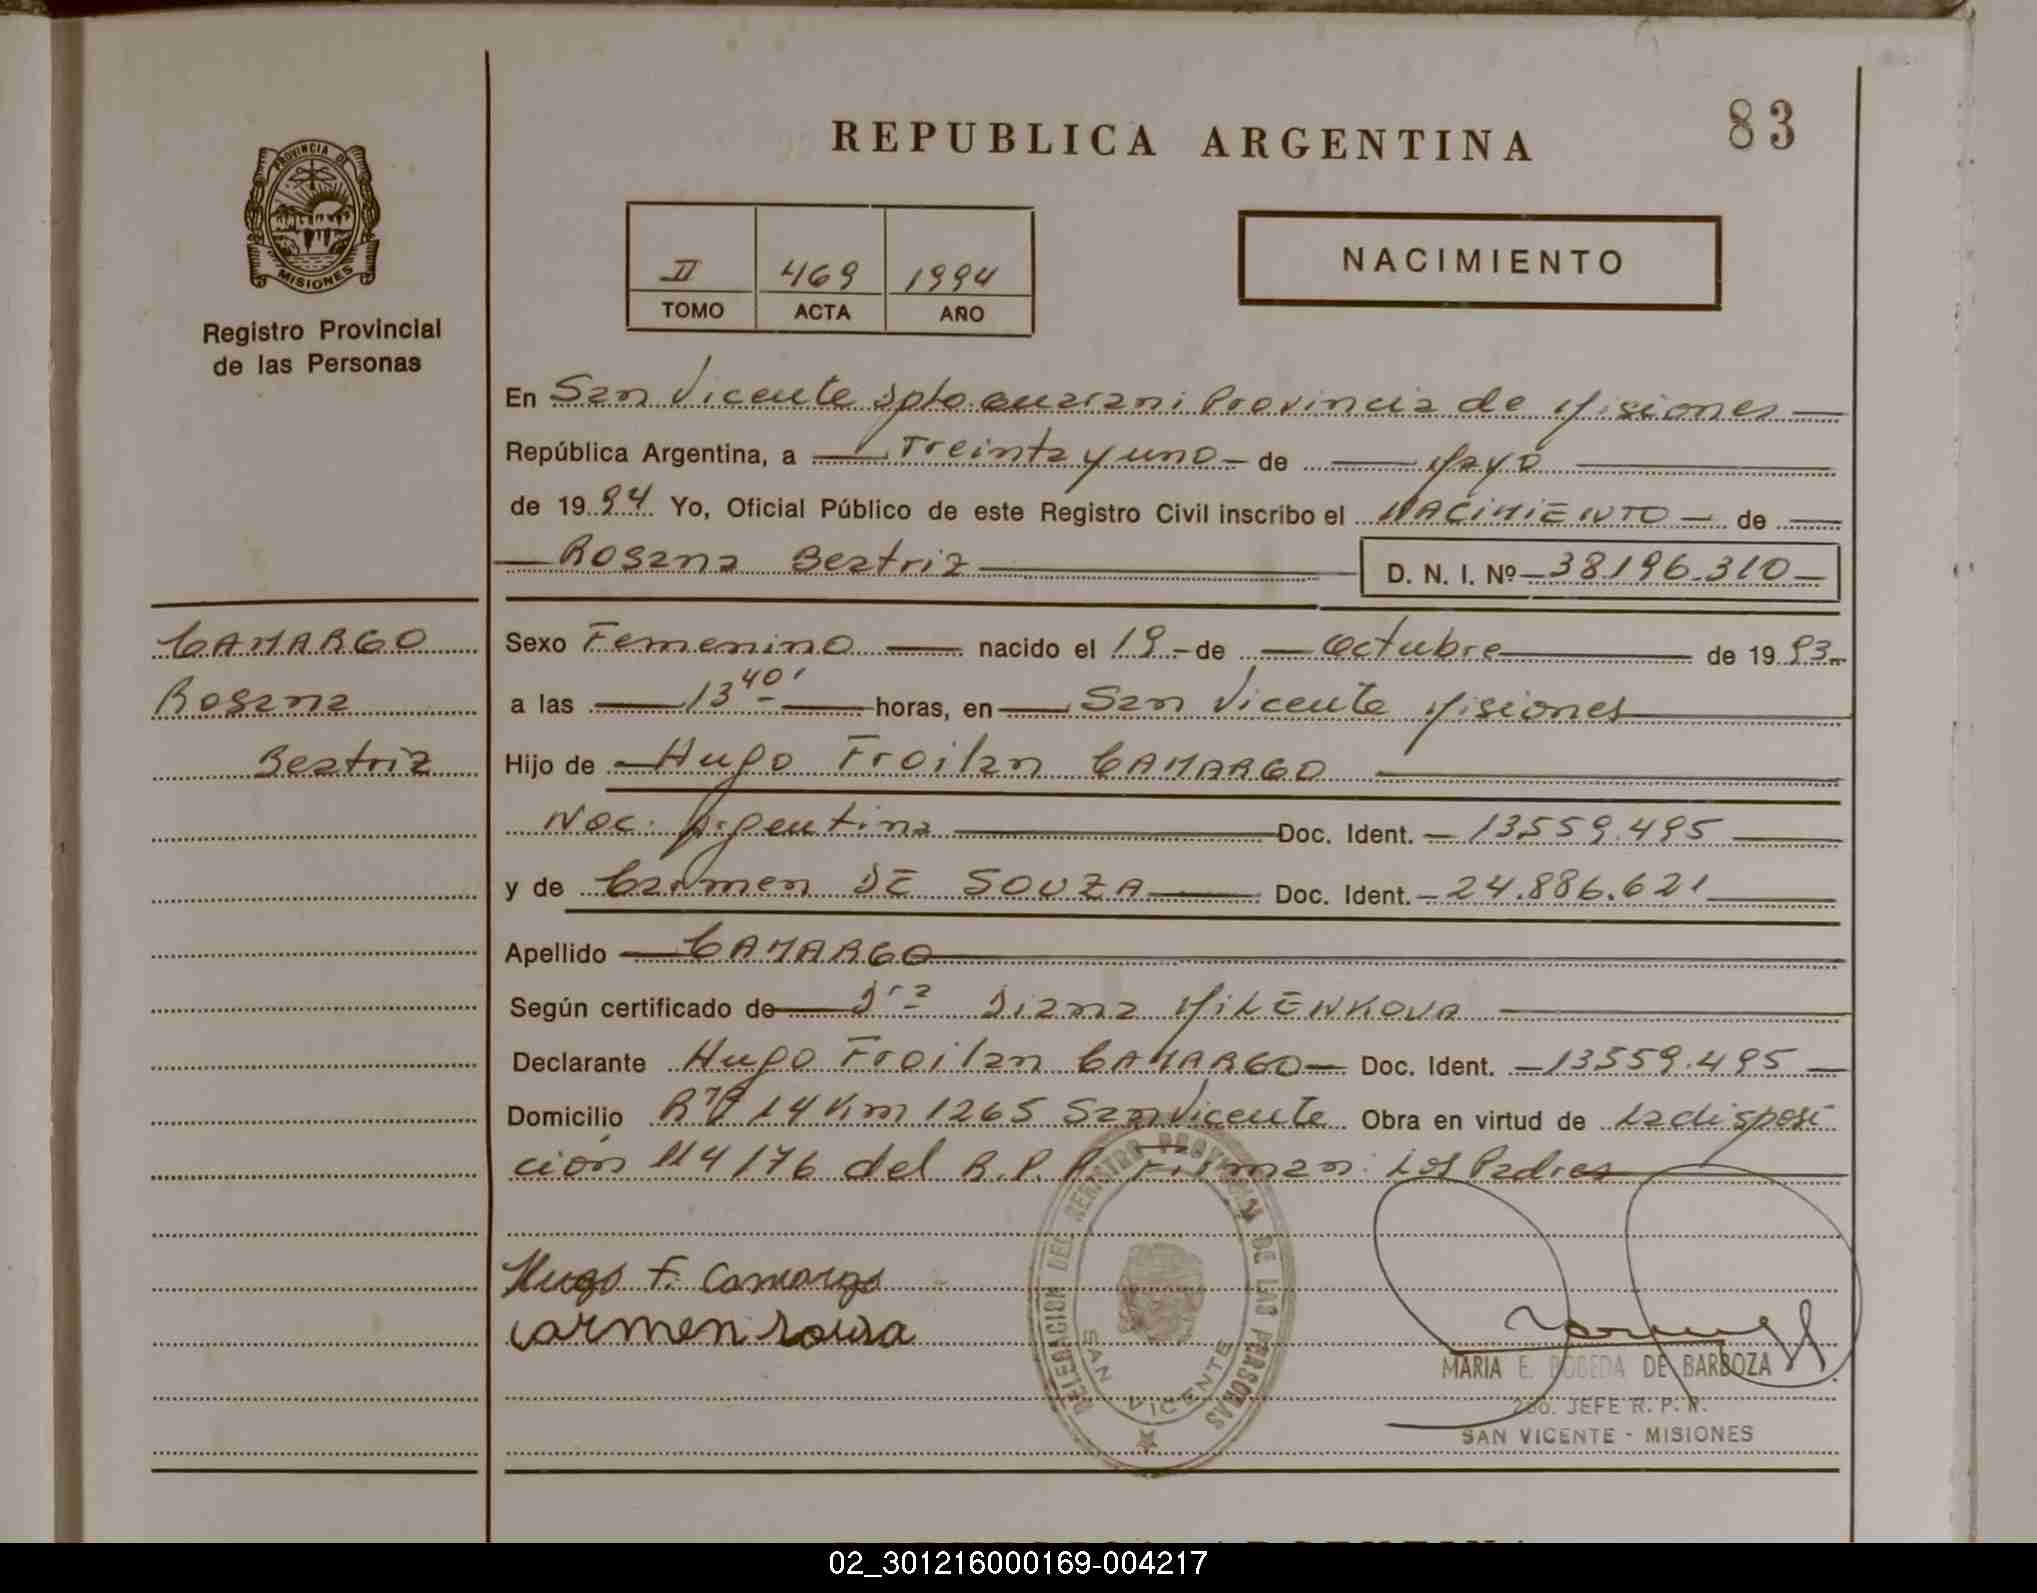 REPUBLICA ARGENTINA
83
PROVINCIA DE
MISIONES
Registro Provincial
de las Personas
II 469 1994
TOMO ACTA AÑO
NACIMIENTO
En San Vicente Dpto Guarani Provincia de Misiones
República Argentina, a Treinta y uno de Mayo
de 1994 Yo, Oficial Público de este Registro Civil inscribo el NACIMIENTO de
Rosana Beatriz D. N. I. Nº 38196.310
CAMARGO
Rosana
Beatriz
Sexo Femenino nacido el 19 de Octubre de 1993
a las 13 40' horas, en San Vicente Misiones
Hijo de Hugo Froilan CAMARGO
Nac. Argentina Doc. Ident. 13559.495
y de Carmen DE SOUZA Doc. Ident. 24.886.621
Apellido CAMARGO
Según certificado de Dra Diana MILENKOVA
Declarante Hugo Froilan CAMARGO Doc. Ident. 13559.495
Domicilio 14 Km 1265 San Vicente Obra en virtud de la disposi
ción 114/76 del R.P.P. Firman: Los Padres
Hugo F. Camargo
Carmen Souza
DELEGACION DEL REGISTRO PROVINCIAL DE LAS PERSONAS
SAN VICENTE
MARIA E. BOBEDA DE BARBOZA
2do. JEFE R. P. P.
SAN VICENTE - MISIONES
02_301216000169-004217